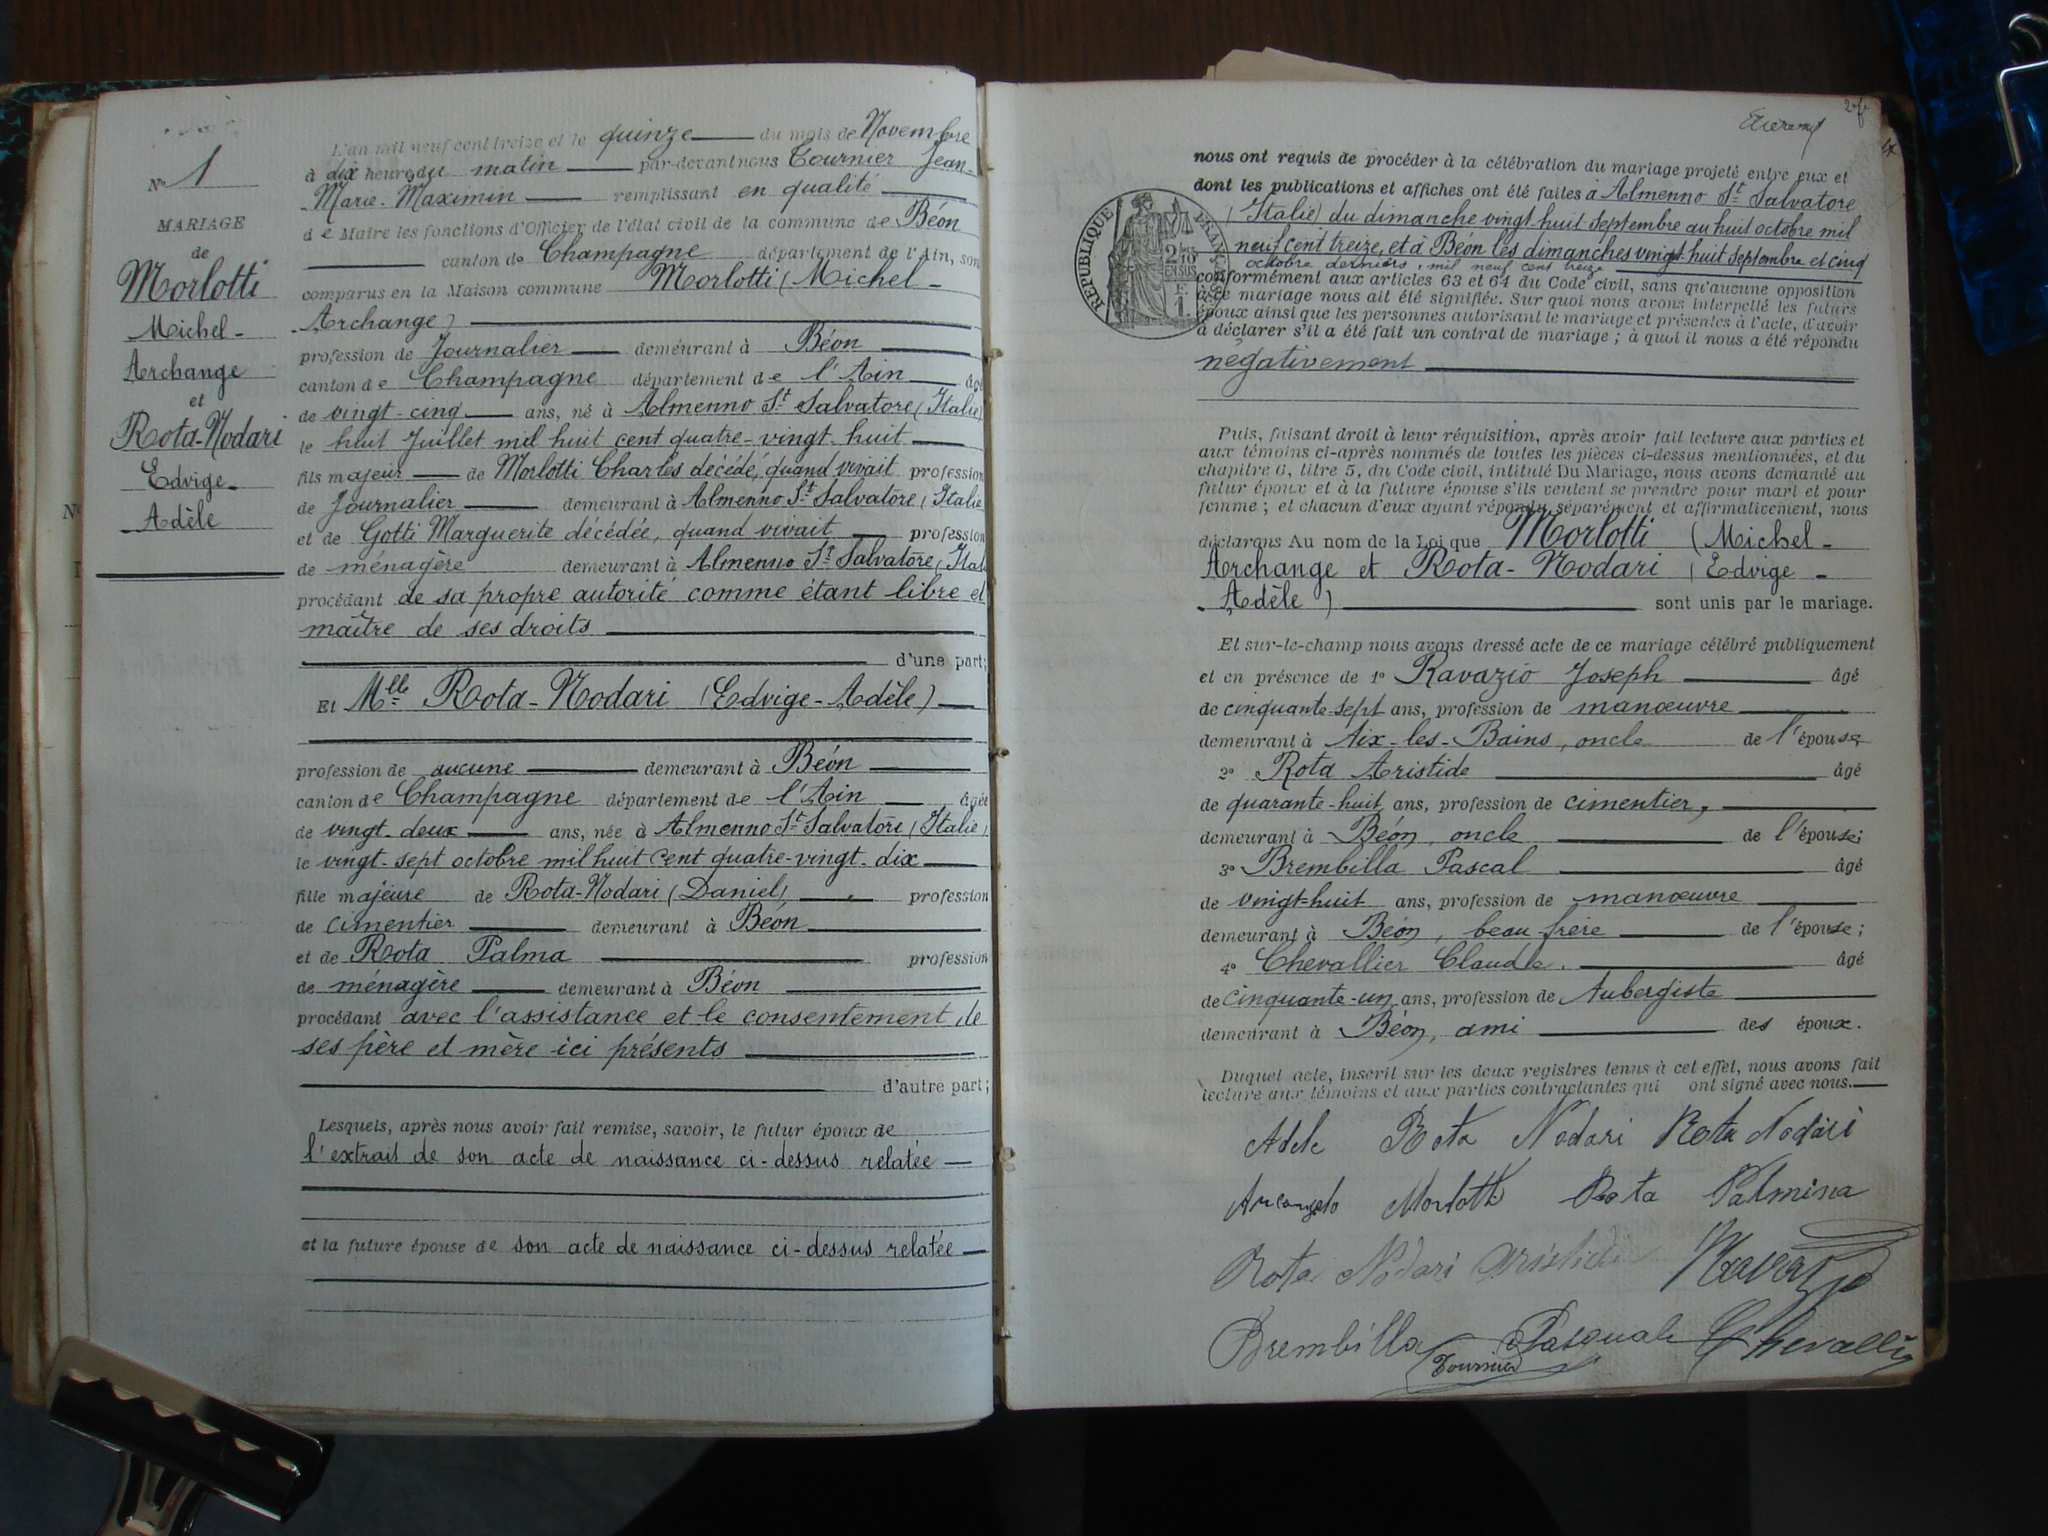 N° 1
MARIAGE
de
Morlotti
Michel-
Archange
et
Rota-Nodari
Edvige-
Adèle
L'an mil neuf cent treize et le quinze du mois de Novembre
à dix heures du matin par-devant nous Tournier Jean-
Marie-Maximin remplissant en qualité
de Maire les fonctions d'Officier de l'état civil de la commune de Béon
canton de Champagne département de l'Ain, son
comparus en la Maison commune Morlotti (Michel-
Archange)
profession de Journalier demeurant à Béon
canton de Champagne département de l'Ain âgé
de vingt-cinq ans, né à Almenno St Salvatore (Italie)
le huit Juillet mil huit cent quatre-vingt-huit
fils majeur de Morlotti Charles décédé, quand vivait profession
de Journalier demeurant à Almenno St Salvatore (Italie
et de Gotti Marguerite décédée, quand vivait profession
de ménagère demeurant à Almenno St Salvatore (Ital
procédant de sa propre autorité comme étant libre et
maître de ses droits
d'une part;
Et Mlle Rota-Nodari (Edvige-Adèle)
profession de aucune demeurant à Béon
canton de Champagne département de l'Ain âgée
de vingt-deux ans, née à Almenno St Salvatore (Italie)
le vingt-sept octobre mil huit cent quatre-vingt-dix
fille majeure de Rota-Nodari (Daniel), profession
de cimentier demeurant à Béon
et de Rota Palma profession
de ménagère demeurant à Béon
procédant avec l'assistance et le consentement de
ses père et mère ici présents
d'autre part;
Lesquels, après nous avoir fait remise, savoir, le futur époux de
l'extrait de son acte de naissance ci-dessus relatée
et la future épouse de son acte de naissance ci-dessus relatée
RÉPUBLIQUE FRANÇAISE
nous ont requis de procéder à la célébration du mariage projeté entre eux et
dont les publications et affiches ont été faites à Almenno St Salvatore
(Italie) du dimanche vingt-huit septembre au huit octobre mil
neuf cent treize, et à Béon les dimanches vingt-huit septembre et cinq
octobre derniers, mil neuf cent treize
conformément aux articles 63 et 64 du Code civil, sans qu'aucune opposition
à ce mariage nous ait été signifiée. Sur quoi nous avons interpellé les futurs
époux ainsi que les personnes autorisant le mariage et présentes à l'acte, d'avoir
à déclarer s'il a été fait un contrat de mariage; à quoi il nous a été répondu
négativement
Puis, faisant droit à leur réquisition, après avoir fait lecture aux parties et
aux témoins ci-après nommés de toutes les pièces ci-dessus mentionnées, et du
chapitre 6, titre 5, du Code civil, intitulé Du Mariage, nous avons demandé au
futur époux et à la future épouse s'ils veulent se prendre pour mari et pour
femme; et chacun d'eux ayant répondu séparément et affirmativement, nous
déclarons Au nom de la Loi que Morlotti (Michel-
Archange et Rota-Nodari (Edvige-
Adèle) sont unis par le mariage.
Et sur-le-champ nous avons dressé acte de ce mariage célébré publiquement
et en présence de 1° Ravazio Joseph âgé
de cinquante-sept ans, profession de manœuvre
demeurant à Aix-les-Bains, oncle de l'épouse
2° Rota Aristide âgé
de quarante-huit ans, profession de cimentier,
demeurant à Béon, oncle de l'épouse;
3° Brembilla Pascal âgé
de vingt-huit ans, profession de manœuvre
demeurant à Béon, beau-frère de l'épouse;
4° Chevallier Claude. âgé
de cinquante-un ans, profession de Aubergiste
demeurant à Béon, ami des époux.
Duquel acte, inscrit sur les deux registres tenus à cet effet, nous avons fait
lecture aux témoins et aux parties contractantes qui ont signé avec nous.
Adele Rota Nodari Rota Nodari
Arcangelo Morlotti Rota Palmina
Rota Nodari Aristide Ravazio
Brembilla Pasquale Chevallier
Tournier